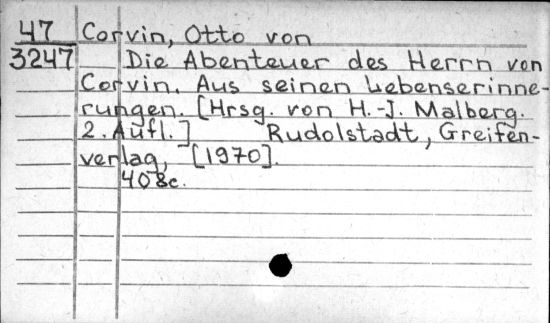 47 Corvin, Otto von
3247 Die Abenteuer des Herrn von
Corvin. Aus seinen Lebenserinne-
rungen. [Hrsg. von H.-J. Malberg.
2. Aufl.] Rudolstadt, Greifen-
verlag, [1970].
408c.